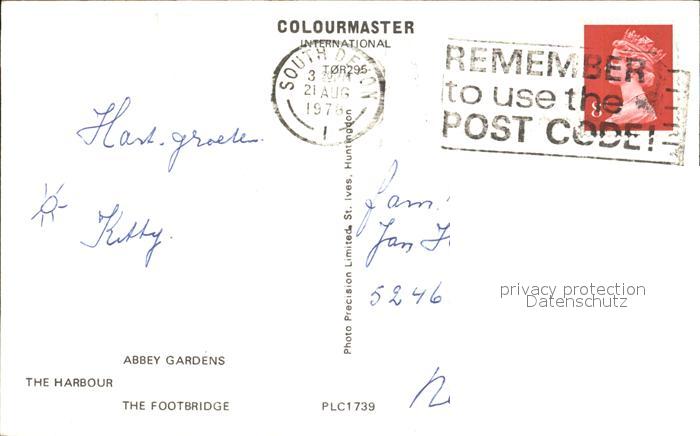 COLOURMASTER
INTERNATIONAL
TØR295
SOUTH DEVON
21 AUG
1976
1
REMEMBER
to use the
POST CODE!
8
Hart. groeten.
Kitty.
Photo Precision Limited, St. Ives, Huntingdon
fam.
Jan
5246
privacy protection
Datenschutz
ABBEY GARDENS
THE HARBOUR
THE FOOTBRIDGE
PLC1739